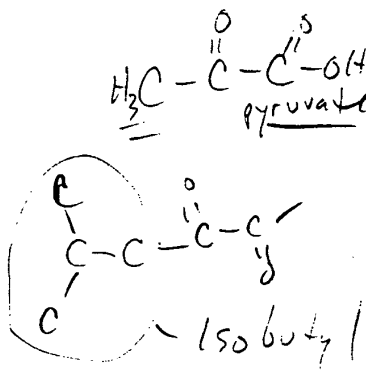 O O
H₃C - C - C - OH
pyruvate
C O
C - C - C - C
C
Isobutyl